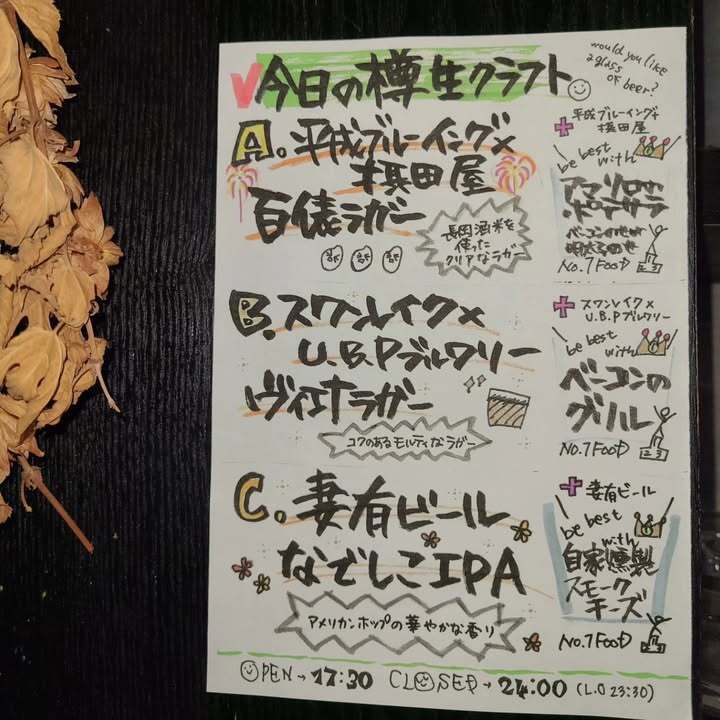 今日の樽生クラフト
would you like
a glass
of beer?
A. 平成ブルーイング×
枡田屋
百俵ラガー
長岡酒米を
使った
クリアなラガー
+ 平成ブルーイング×
枡田屋
be best
with
アマリロの
ポテサラ
ベーコンのせor
明太子のせ
No.7 FOOD
B. スワンレイク×
U.B.Pブルワリー
ヴィエナラガー
コクのあるモルティなラガー
+ スワンレイク×
U.B.Pブルワリー
be best
with
ベーコンの
グリル
No.7 FOOD
C. 妻有ビール
なでしこIPA
アメリカンホップの華やかな香り
+ 妻有ビール
be best
with
自家燻製
スモーク
チーズ
No.7 FOOD
OPEN→17:30 CLOSED→24:00 (L.O 23:30)